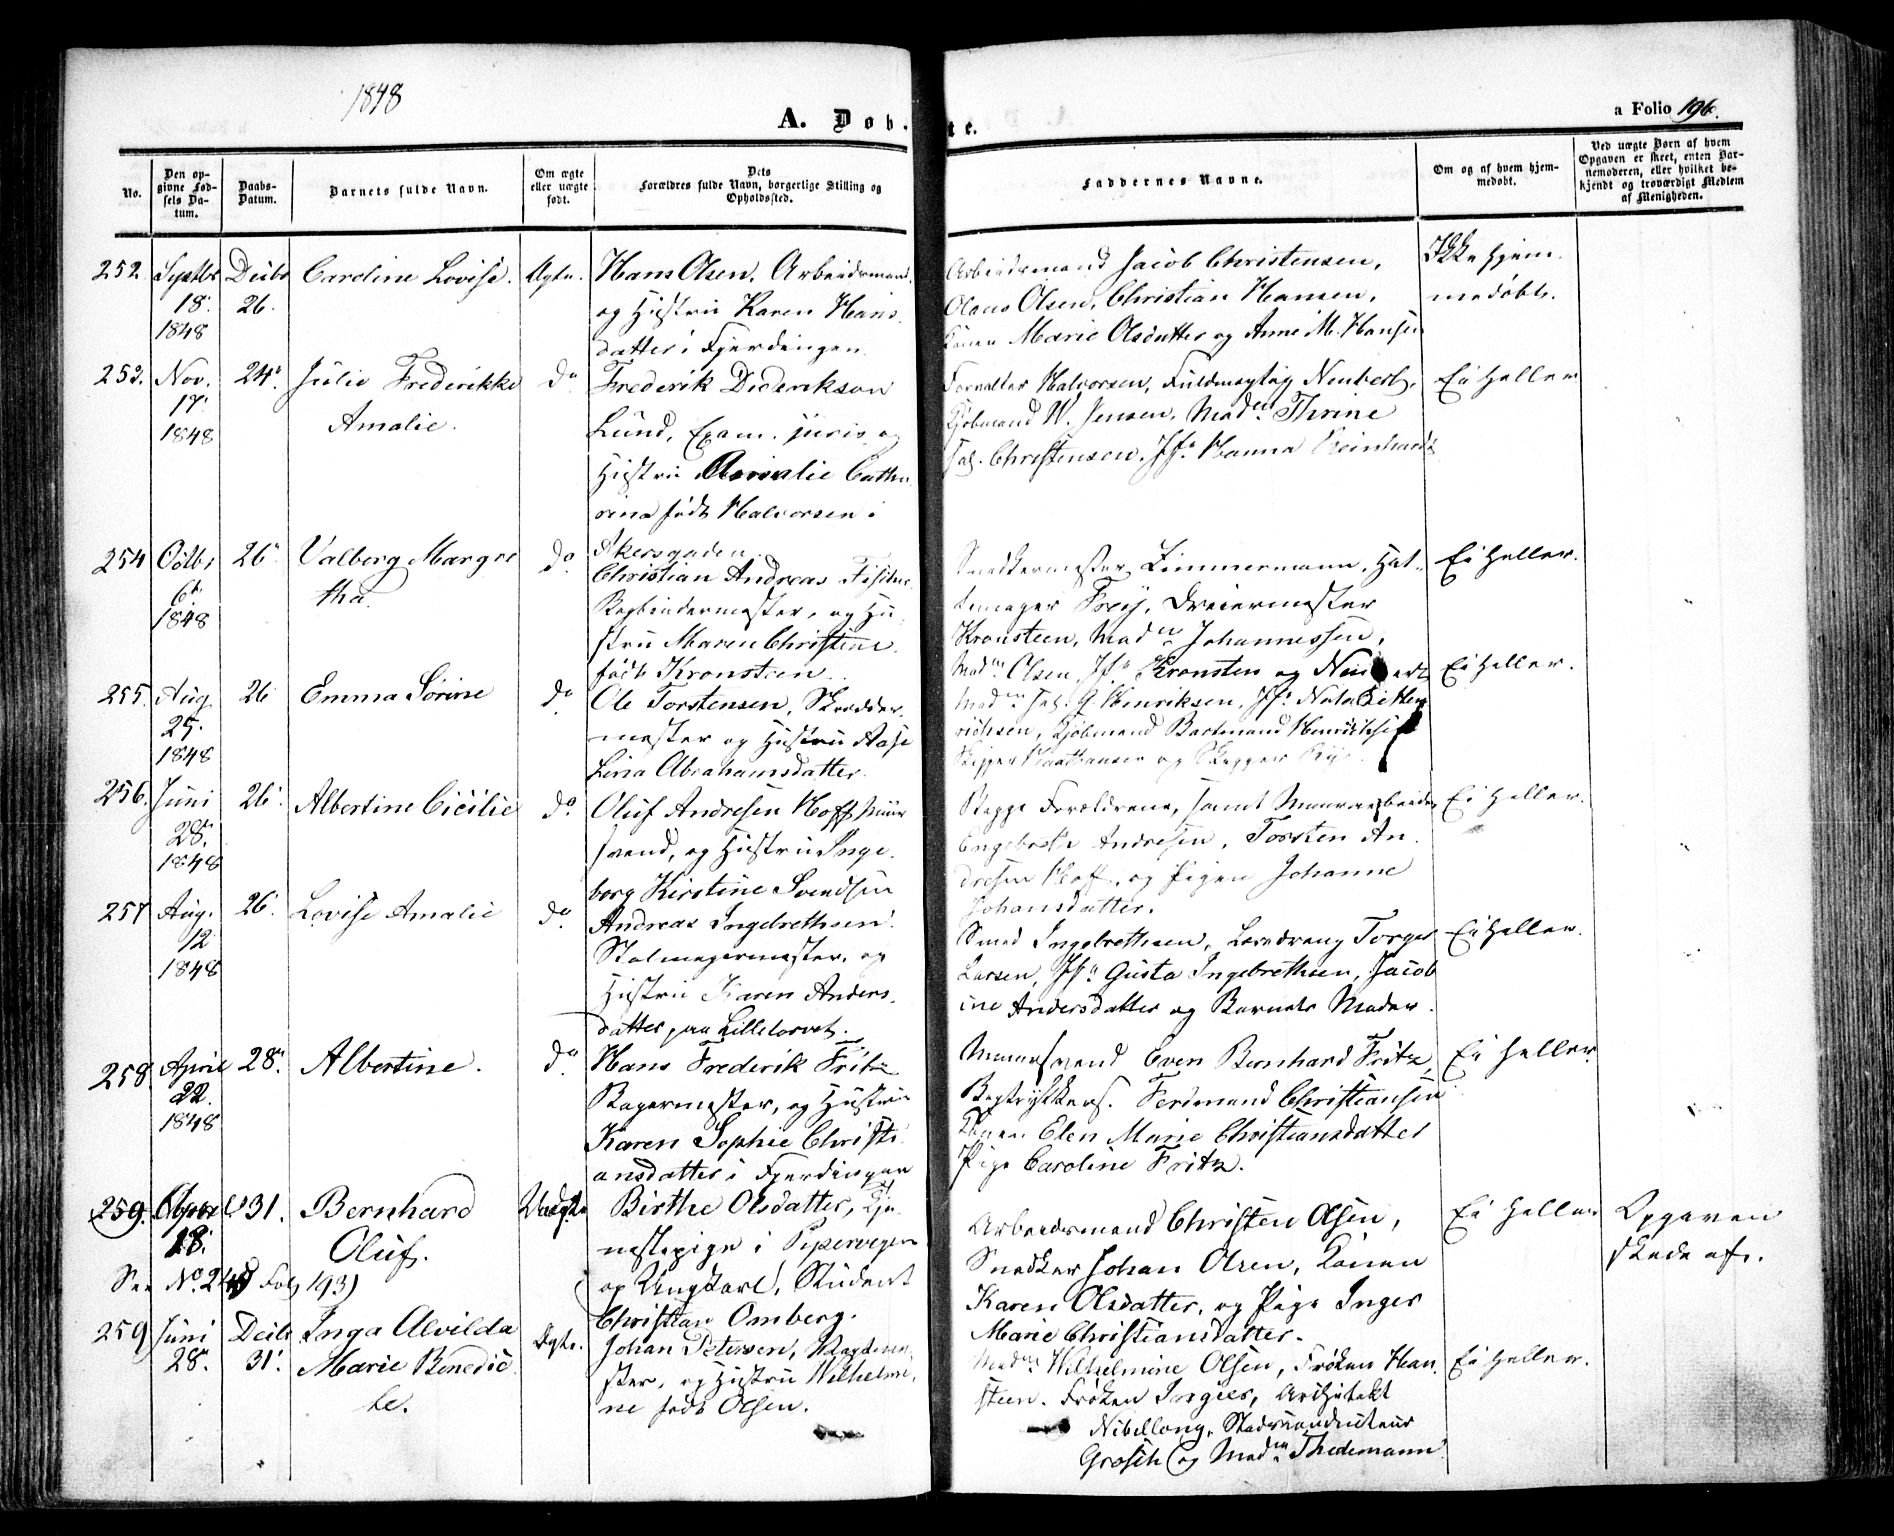 1848
A. Døb.
te.
a Folio 196.
No.
Den opgivne Fødsels Datum.
Daabs-Datum.
Barnets fulde Navn.
Om ægte eller uægte født.
Dets Forældres fulde Navn, borgerlige Stilling og Opholdssted.
Faddernes Navne.
Om og af hvem hjemmedøbt.
Ved uægte Børn af hvem Opgaven er skeet, enten Barnemoderen, eller hvilket bekjendt og troværdigt Medlem af Menigheden.
252. Septbr 18. 1848
Decbr 26.
Caroline Lovise.
Ægte.
Hans Olsen, Arbeidsmand
og Hustru Karen Hans
datter i Fjerdingen
Arbeidsmand Jacob Christensen,
Olaus Olsen, Christian Hansen,
Konen Marie Olsdatter og Anne M. Hansen
Ikke hjem
medøbt.
253. Nov. 17. 1848
24de
Julie Frederikke
Amalie.
do
Frederik Diderikson
Lund, Exam. juris, og
Hustru Amalie Catha
rina født Halvorsen i
Akersgaden.
Forvalter Halvorsen, Fuldmægtig Neuberth,
Kjøbmand W. Jensen, Madm Thrine
Sal. Christensen, Jfr Hanna Reinhardt
Ei heller
254 Octbr 6te 1848
26de
Valborg Margre
tha.
do
Christian Andreas Fischer
Bogbindermester, og Hu
stru Maren Christine
født Kronsteen.
Snedkermester Zimmermann, Hat
temager Torij, Dreiermester
Kronsteen, Madm Johannessen,
Madm Olsen, Jfr Kronsten og
Ei heller.
255. Aug 25. 1848
26
Emma Sørine
do
Ole Torstensen, Skrædder
mester og Hustru Aase
Lina Abrahamsdatter
Madm Sal. G. Henriksen, Jfr
richsen, Kjøbmand Bartmand Henrichsen
Skipper og Skipper
Ei heller.
256. Juni 28. 1848
26.
Albertine Cicilie
do.
Oluf Andresen Hoff Muur
svend, og Hustru Inge
borg Kirstine Svendsen
Begge Forældrene, samt Muurarbeider
Engebreth Andresen, Torsten An
dresen Hoff, og Pigen Johanne
Johansdatter.
Ei heller.
257 Aug. 12 1848
26.
Lovise Amalie
do.
Andreas Ingebrethsen
Stolmagermester, og
Hustru Karen Anders
datter, paa Lilletorvet.
Smed Ingebrethsen, Læredreng Torger
Larsen, Jfr Gusta Ingebrethsen, Jacob
ine Andersdatter og Barnets Moder.
Ei heller.
258 April 22. 1848
28de
Albertine.
do.
Hans Frederik Fritz
Bagermester, og Hustru
Karen Sophie Christi
ansdatter i Fjerdingen
Muursvend Even Bernhard Fritz,
Bogtrykkers. Ferdinand Christiansen
Konen Elen Marie Christiansdatter
Pige Caroline Fritz.
Ei heller
259. April 18.
31.
Bernhard
Oluf.
Uægte
Birthe Olsdatter, Tje
nestepige i Pipervigen
og Ungkarl, Student
Christian Omberg.
Arbeidsmand Christen Olsen,
Snedker Johan Olsen, Konen
Karen Olsdatter, og Pige Inger
Marie Christiansdatter.
Ei heller
Opgaven
skede af.
See No. Fol 193)
259 Juni 28.
Decbr 31.
Inga Alvilda
Marie Benedic
te.
Ægte.
Johan Petersen,
ster, og Hustru Wilhelmi
ne født Olsen.
Madm Wilhelmine Olsen, Frøken Han
steen. Frøken Ingier, Architekt
Nibellong, Stadsconducteur
Grosch og Madm Thedemann
Ei heller.